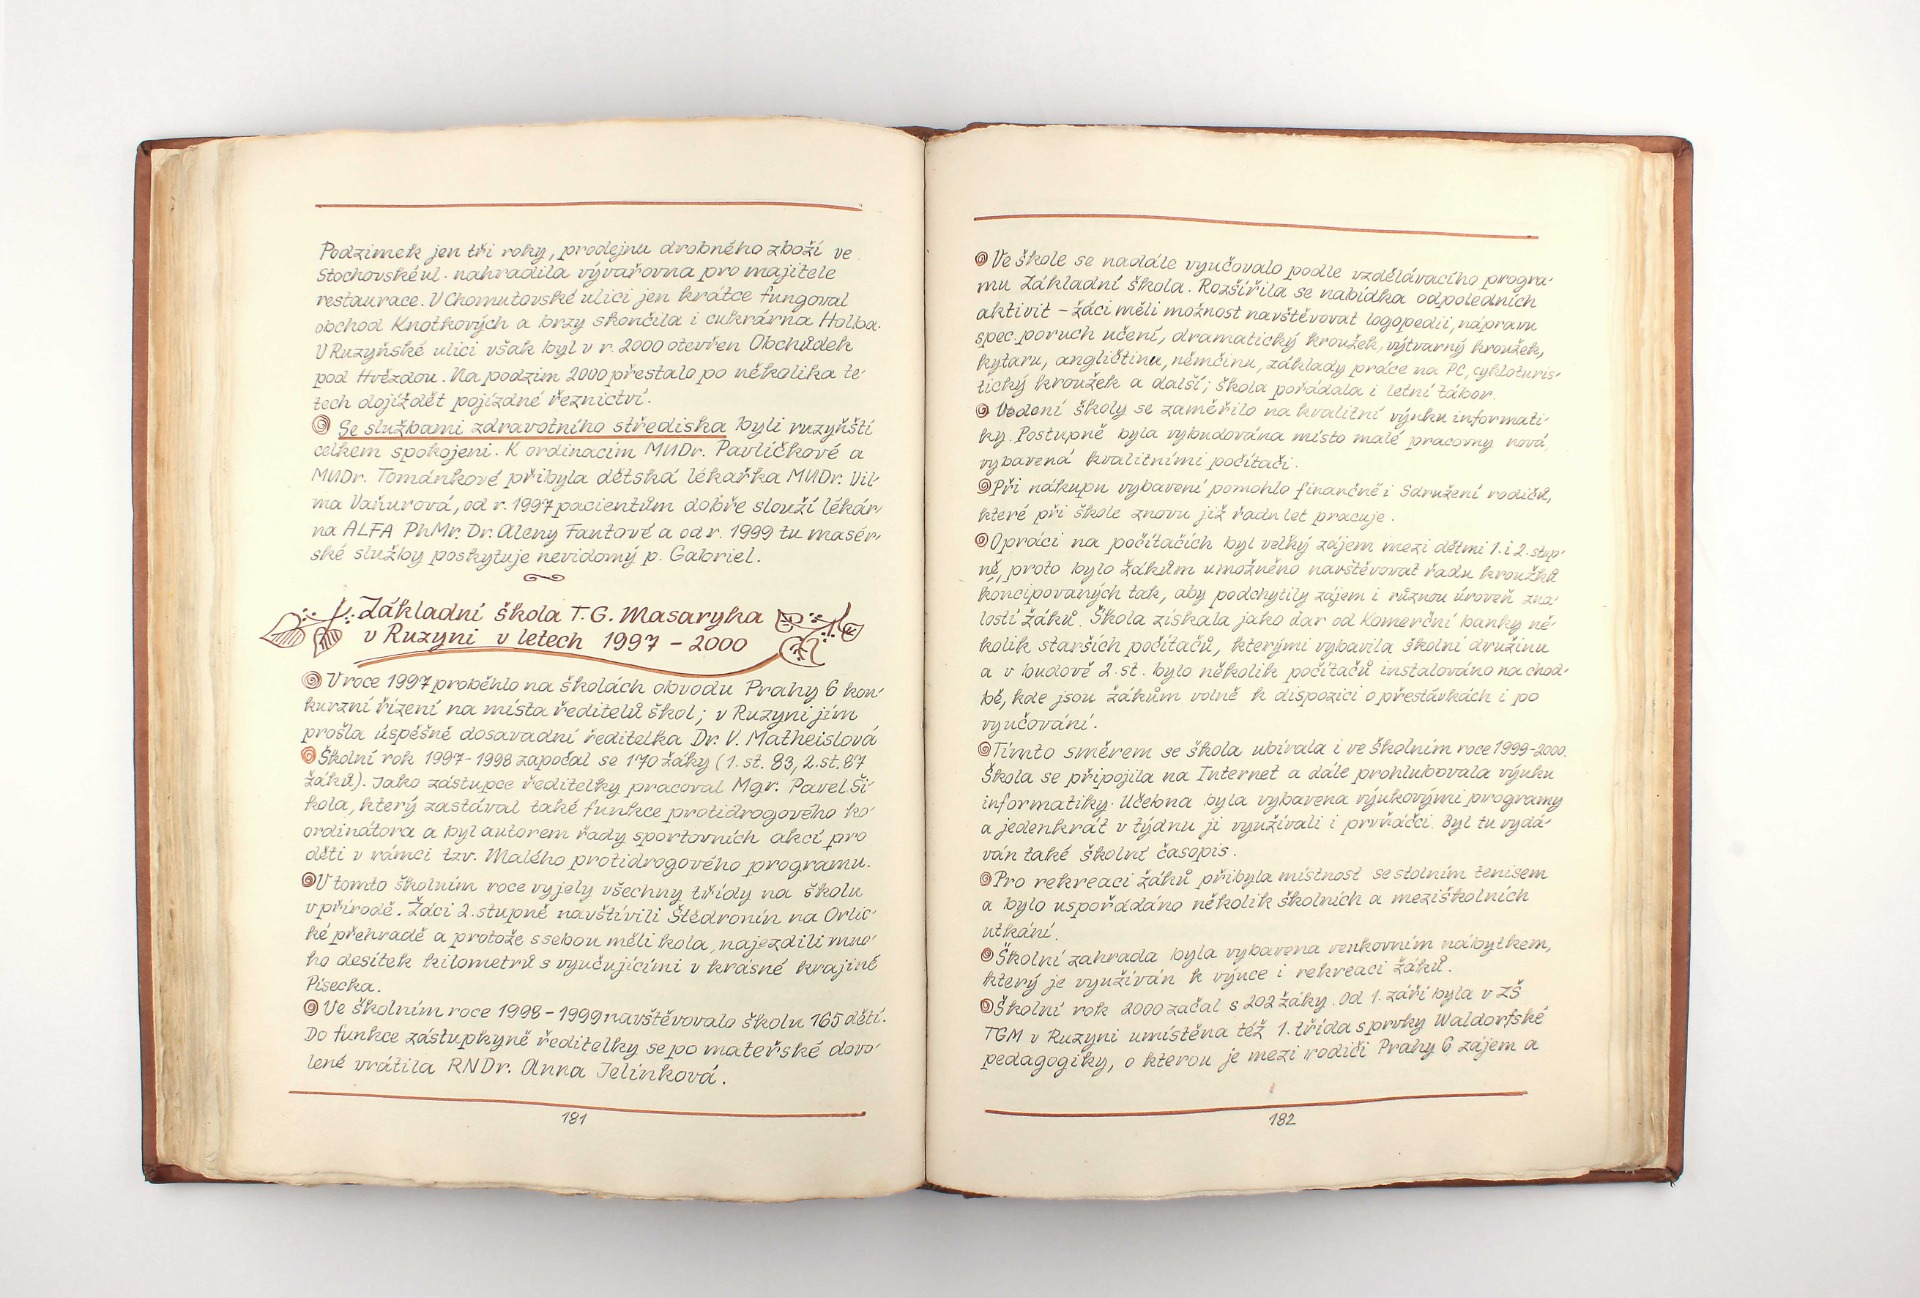 Podzimek jen tři roky, prodejnu drobného zboží ve
Stochovské ul. nahradila vývařovna pro majitele
restaurace. V Chomutovské ulici jen krátce fungoval
obchod Knotkových a brzy skončila i cukrárna Holba.
V Ruzyňské ulici však byl v r. 2000 otevřen Obchůdek
pod Hvězdou. Na podzim 2000 přestalo po několika le-
tech dojíždět pojízdné řeznictví.
Se službami zdravotního střediska byli ruzyňští
celkem spokojeni. K ordinacím MUDr. Pavlíčkové a
MUDr. Tománkové přibyla dětská lékařka MUDr. Vil-
ma Vaňurová, od r. 1997 pacientům dobře slouží lékár-
na ALFA PhMr. Dr. Aleny Fantové a od r. 1999 tu masér-
ské služby poskytuje nevidomý p. Gabriel.
Základní škola T. G. Masaryka
v Ruzyni v letech 1997 - 2000
V roce 1997 proběhlo na školách obvodu Prahy 6 kon-
kurzní řízení na místa ředitelů škol; v Ruzyni jím
prošla úspěšně dosavadní ředitelka Dr. V. Matheislová
Školní rok 1997-1998 započal se 170 žáky (1. st. 83, 2. st. 87
žáků). Jako zástupce ředitelky pracoval Mgr. Pavel Ši-
kola, který zastával také funkce protidrogového ko-
ordinátora a byl autorem řady sportovních akcí pro
děti v rámci tzv. Malého protidrogového programu.
V tomto školním roce vyjely všechny třídy na školu
v přírodě. Žáci 2. stupně navštívili Štědronín na Orlic-
ké přehradě a protože s sebou měli kola, najezdili mno-
ho desítek kilometrů s vyučujícími v krásné krajině
Písecka.
Ve školním roce 1998-1999 navštěvovalo školu 165 dětí.
Do funkce zástupkyně ředitelky se po mateřské dovo-
lené vrátila RNDr. Anna Jelínková.
181
Ve škole se nadále vyučovalo podle vzdělávacího progra-
mu Základní škola. Rozšířila se nabídka odpoledních
aktivit - žáci měli možnost navštěvovat logopedii, nápravu
spec. poruch učení, dramatický kroužek, výtvarný kroužek,
kytaru, angličtinu, němčinu, základy práce na PC, cykloturis-
tický kroužek a další; škola pořádala i letní tábor.
Vedení školy se zaměřilo na kvalitní výuku informati-
ky. Postupně byla vybudována místo malé pracovny nová,
vybavená kvalitními počítači.
Při nákupu vybavení pomohlo finančně i Sdružení rodičů,
které při škole znovu již řadu let pracuje.
O práci na počítačích byl velký zájem mezi dětmi 1. i 2. stup-
ně, proto bylo žákům umožněno navštěvovat řadu kroužků
koncipovaných tak, aby podchytily zájem i různou úroveň zna-
lostí žáků. Škola získala jako dar od Komerční banky ně-
kolik starších počítačů, kterými vybavila školní družinu
a v budově 2. st. bylo několik počítačů instalováno na chod-
bě, kde jsou žákům volně k dispozici o přestávkách i po
vyučování.
Tímto směrem se škola ubírala i ve školním roce 1999-2000.
Škola se připojila na Internet a dále prohlubovala výuku
informatiky. Učebna byla vybavena výukovými programy
a jedenkrát v týdnu ji využívali i prvňáčci. Byl tu vydá-
ván také školní časopis.
Pro rekreaci žáků přibyla místnost se stolním tenisem
a bylo uspořádáno několik školních a meziškolních
utkání.
Školní zahrada byla vybavena venkovním nábytkem,
který je využíván k výuce i rekreaci žáků.
Školní rok 2000 začal s 202 žáky. Od 1. září byla v ZŠ
TGM v Ruzyni umístěna též 1. třída s prvky Waldorfské
pedagogiky, o kterou je mezi rodiči Prahy 6 zájem a
182